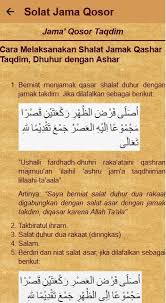 ← Solat Jama Qosor
Jama' Qosor Taqdim
Cara Melaksanakan Shalat Jamak Qashar
Taqdim, Dhuhur dengan Ashar
1. Berniat menjamak qashar shalat duhur dengan
jamak takdim. Jika dilafalkan sebagai berikut:
أُصَلِّي فَرْضَ الظُّهْرِ رَكْعَتَيْنِ قَصْرًا
مَجْمُوْعًا إِلَيْهِ العَصْرُ جَمْعَ تَقْدِيْمًا للهِ
تَعَالَى
"Ushalli fardhadh-dhuhri raka'ataini qashran
majmuu'an ilaihil 'ashru jam'a taqdiiman
lillaahi ta'aala"
Artinya: "Saya berniat salat duhur dua rakaat
digabungkan dengan salat asar dengan jamak
takdim, diqasar karena Allah Ta'ala"
2. Takbiratul ihram.
3. Salat duhur dua rakaat (diringkas)
4. Salam.
5. Berdiri dan niat salat asar, jika dilafalkan sebagai
berikut:
أُصَلِّي فَرْضَ الظُّهْرِ رَكْعَتَيْنِ قَصْرًا
مَجْمُوْعًا إِلَيْهِ العَصْرُ جَمْعَ تَقْدِيْمًا للهِ